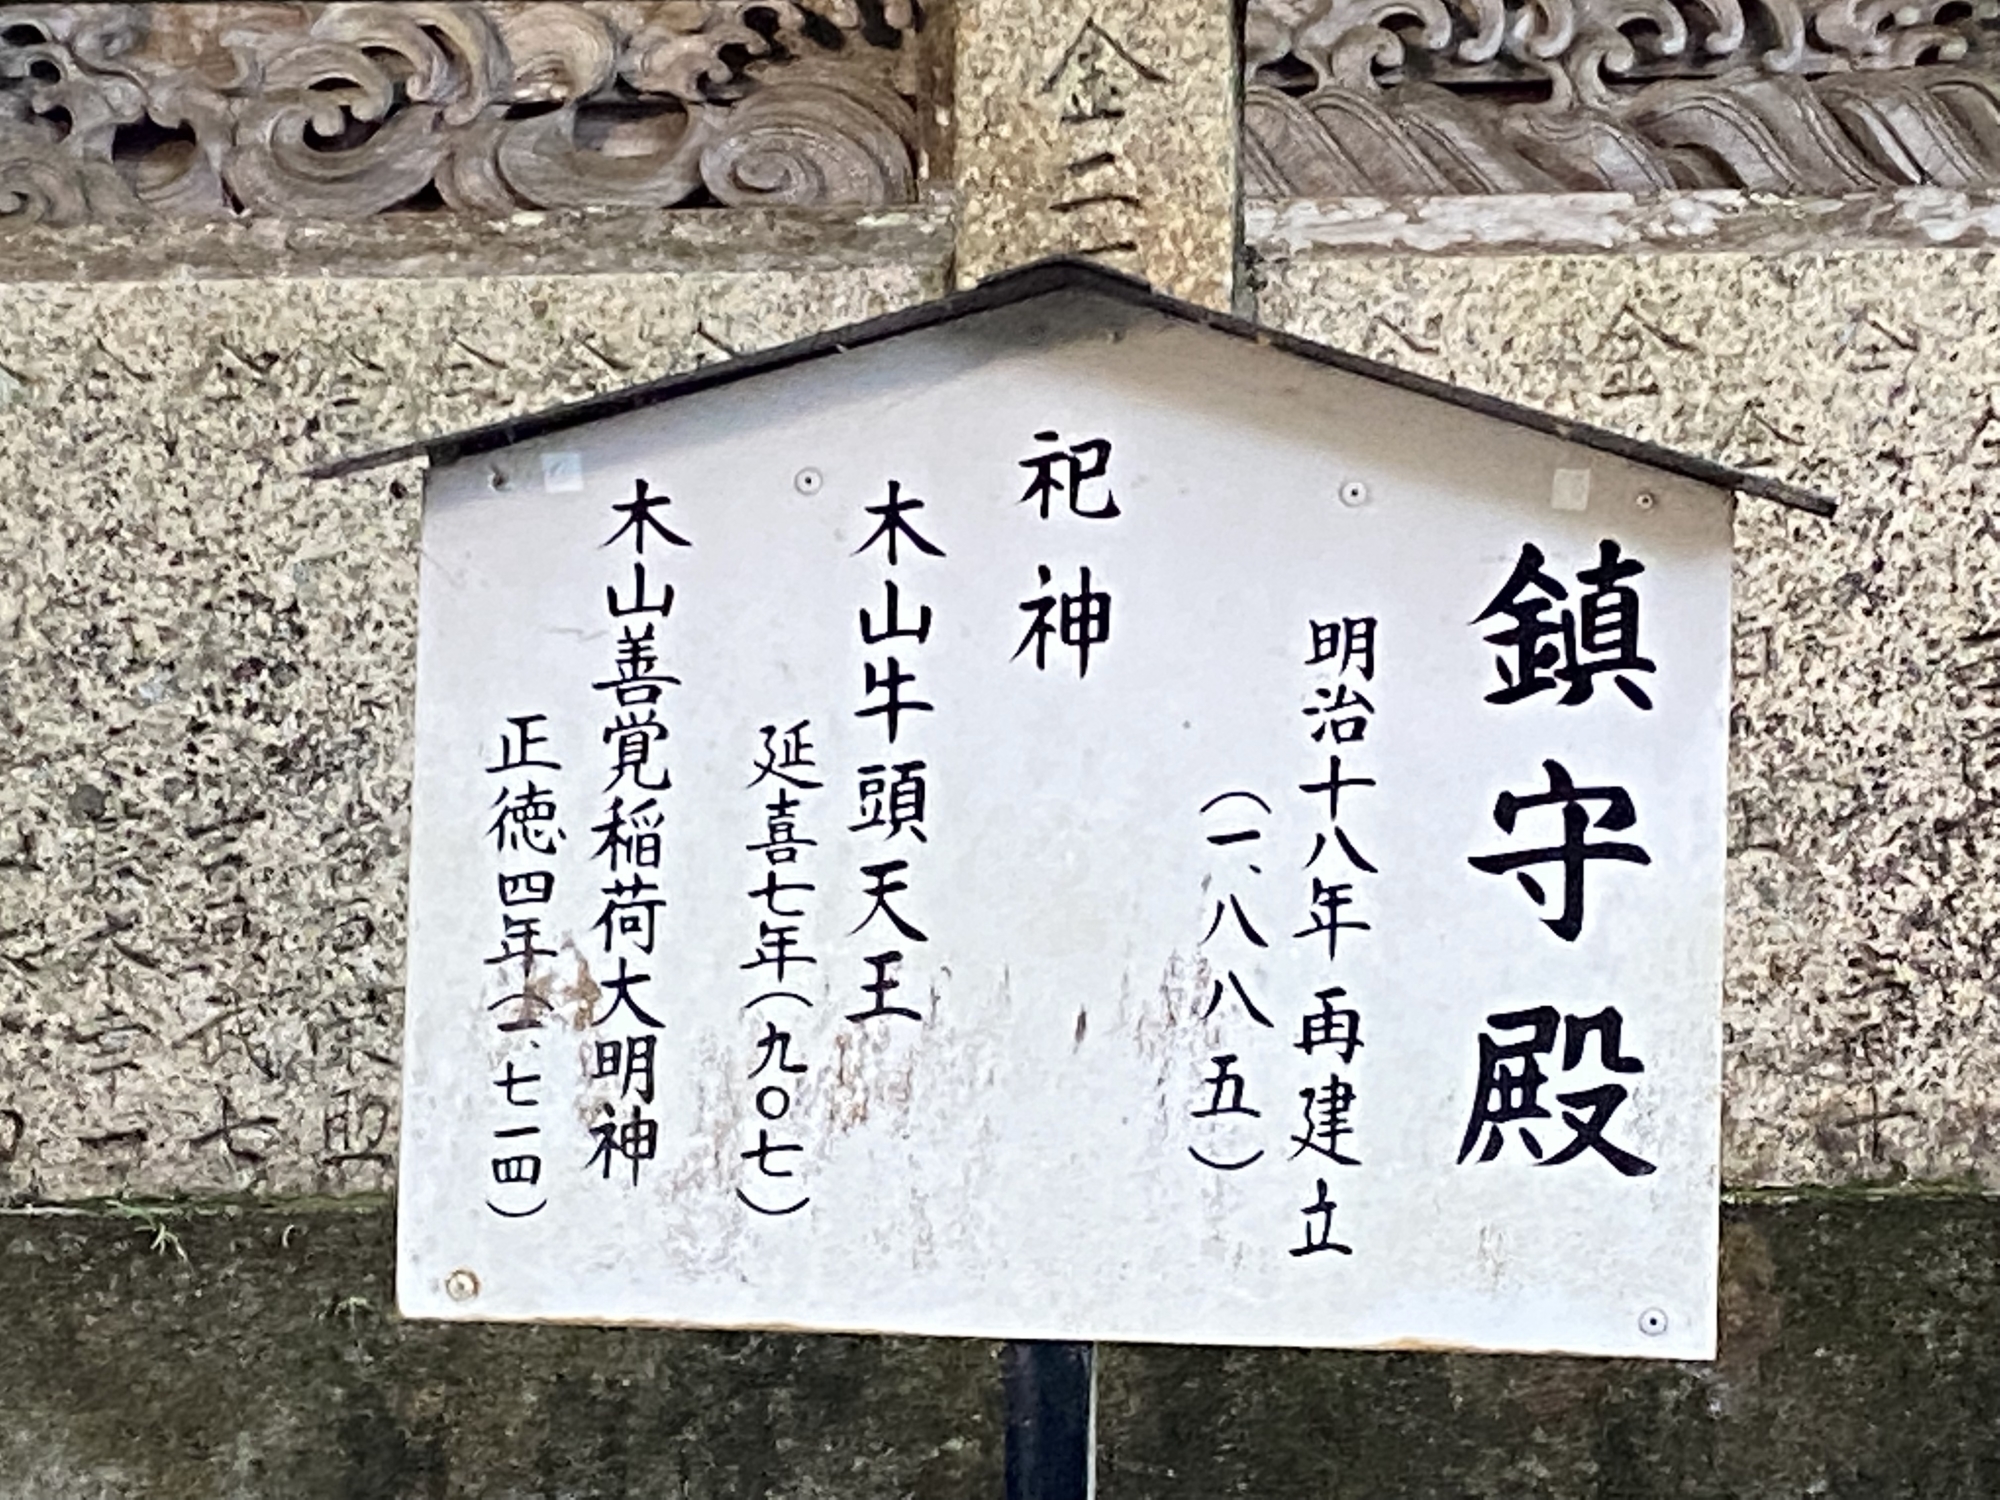 鎮守殿
明治十八年再建立
(一、八八五)
祀神
木山牛頭天王
延喜七年(九〇七)
木山善覚稲荷大明神
正徳四年(一、七一四)
金二